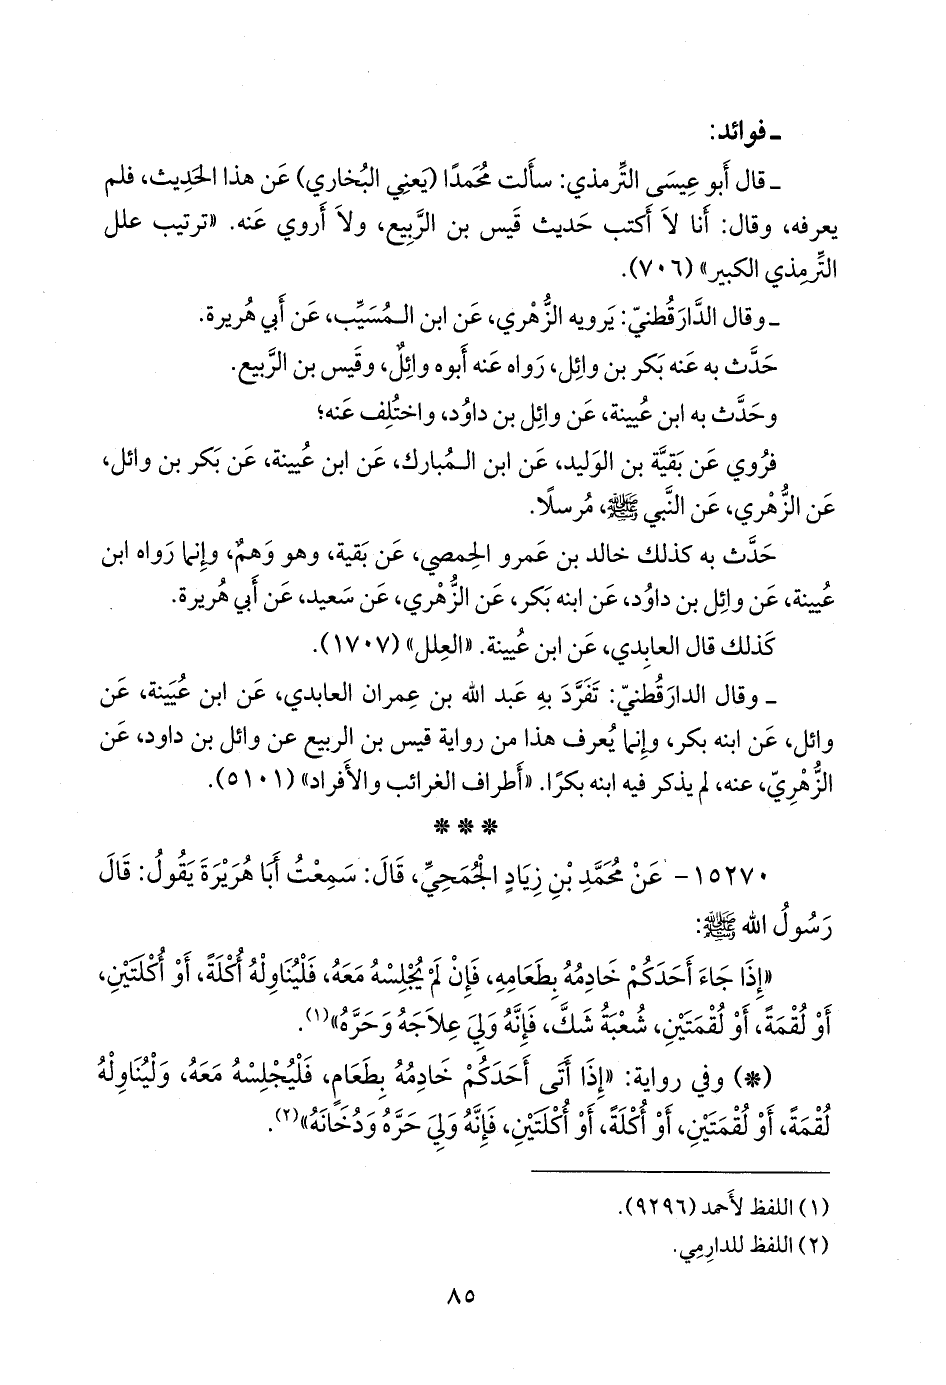 ـ فوائد:
ـ قال أَبو عِيسَى التِّرمذي: سأَلت مُحَمدًا (يَعنِي البُخاري) عَن هذا الحَدِيث، فلم
يعرفه، وقال: أَنا لاَ أَكتب حَديث قَيس بن الرَّبِيع، ولاَ أَروي عَنه. «ترتيب علل
التِّرمِذي الكبير» (٧٠٦).
ـ وقال الدَّارَقُطنيّ: يَرويه الزُّهْري، عَن ابن الـمُسَيِّب، عَن أَبي هُريرة.
حَدَّث به عَنه بَكر بن وائِل، رَواه عَنه أَبوه وائِلٌ، وقَيس بن الرَّبيع.
وحَدَّث به ابن عُيينة، عَن وائِل بن داوُد، واختُلِف عَنه؛
فرُوي عَن بَقيَّة بن الوَليد، عَن ابن الـمُبارك، عَن ابن عُيينة، عَن بَكر بن وائل،
عَن الزُّهْري، عَن النَّبي ﷺ، مُرسلًا.
حَدَّث به كذلك خالد بن عَمرو الحِمصي، عَن بَقية، وهو وَهمٌ، وإِنما رَواه ابن
عُيينة، عَن وائِل بن داوُد، عَن ابنه بَكر، عَن الزُّهْري، عَن سَعيد، عَن أَبي هُريرة.
كَذلك قال العابِدي، عَن ابن عُيينة. «العِلل» (١٧٠٧).
ـ وقال الدارَقُطنيّ: تَفَرَّدَ بِهِ عَبد الله بن عِمران العابدي، عَن ابن عُيَينة، عَن
وائل، عَن ابنه بكر، وإِنما يُعرف هذا من رواية قيس بن الربيع عن وائل بن داود، عَن
الزُّهْرِيّ، عنه، لم يذكر فيه ابنه بكرًا. «أَطراف الغرائب والأَفراد» (٥١٠١).
* * *
١٥٢٧٠- عَنْ مُحَمَّدِ بْنِ زِيَادٍ الْجُمَحِيِّ، قَالَ: سَمِعْتُ أَبَا هُرَيْرَةَ يَقُولُ: قَالَ
رَسُولُ الله ﷺ:
«إِذَا جَاءَ أَحَدَكُمْ خَادِمُهُ بِطَعَامِهِ، فَإِنْ لَمْ يُجْلِسْهُ مَعَهُ، فَلْيُنَاوِلْهُ أُكْلَةً، أَوْ أُكْلَتَيْنِ،
أَوْ لُقْمَةً، أَوْ لُقْمَتَيْنِ، شُعْبَةُ شَكَّ، فَإِنَّهُ وَلِيَ عِلاَجَهُ وَحَرَّهُ»(١).
(*) وفي رواية: «إِذَا أَتَى أَحَدَكُمْ خَادِمُهُ بِطَعَامٍ، فَلْيُجْلِسْهُ مَعَهُ، وَلْيُنَاوِلْهُ
لُقْمَةً، أَوْ لُقْمَتَيْنِ، أَوْ أُكْلَةً، أَوْ أُكْلَتَيْنِ، فَإِنَّهُ وَلِيَ حَرَّهُ وَدُخَانَهُ»(٢).
(١) اللفظ لأَحمد (٩٢٩٦).
(٢) اللفظ للدارِمِي.
٨٥